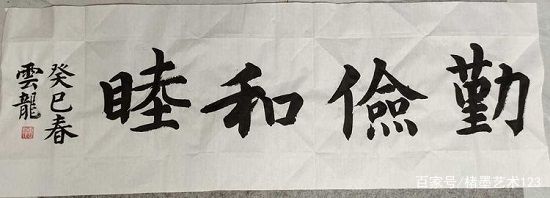 勤儉和睦
癸巳春
雲龍
百家号/楮墨艺术123